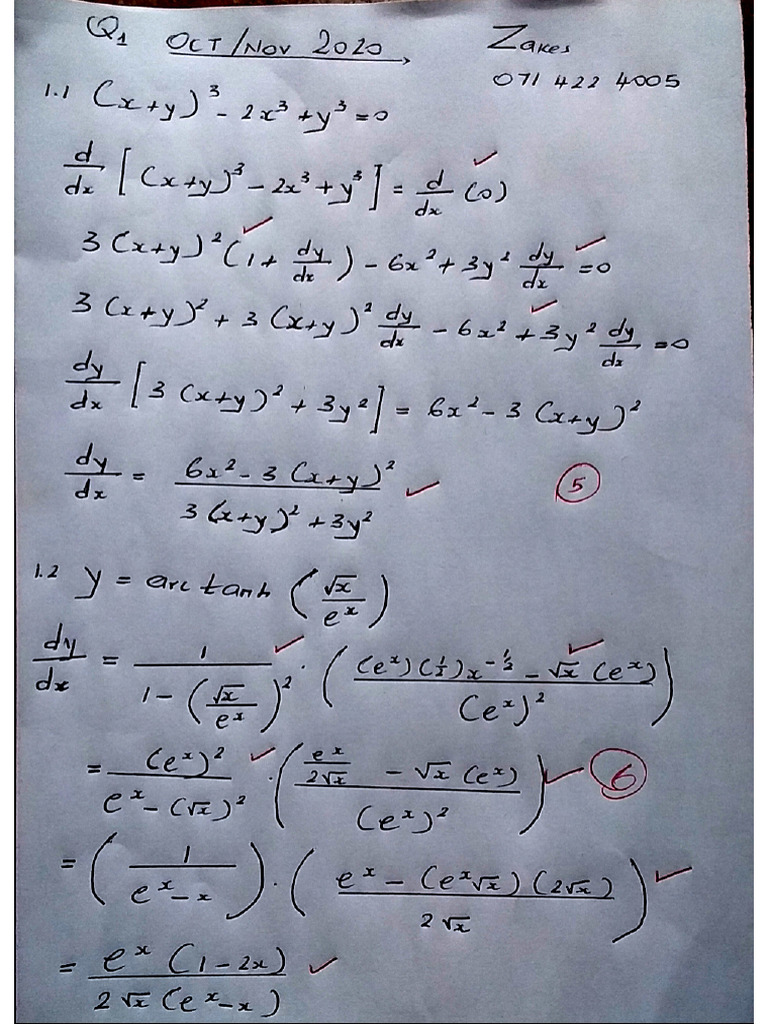 Q1 OCT/NOV 2020 Zakes
071 422 4005
1.1 (x+y)³ - 2x³ + y³ = 0
d/dx [(x+y)³ - 2x³ + y³] = d/dx (0)
3(x+y)² (1 + dy/dx) - 6x² + 3y² dy/dx = 0
3(x+y)² + 3(x+y)² dy/dx - 6x² + 3y² dy/dx = 0
dy/dx [3(x+y)² + 3y²] = 6x² - 3(x+y)²
dy/dx = (6x² - 3(x+y)²) / (3(x+y)² + 3y²) 5
1.2 y = arc tanh (√x / eˣ)
dy/dx = 1 / (1 - (√x / eˣ)²) · (((eˣ)(1/2)x^(-1/2) - √x(eˣ)) / (eˣ)²)
= (eˣ)² / (eˣ - (√x)²) · ((eˣ/(2√x) - √x(eˣ)) / (eˣ)²) 6
= (1 / (eˣ - x)) · ((eˣ - (eˣ√x)(2√x)) / (2√x))
= eˣ(1 - 2x) / (2√x(eˣ - x))